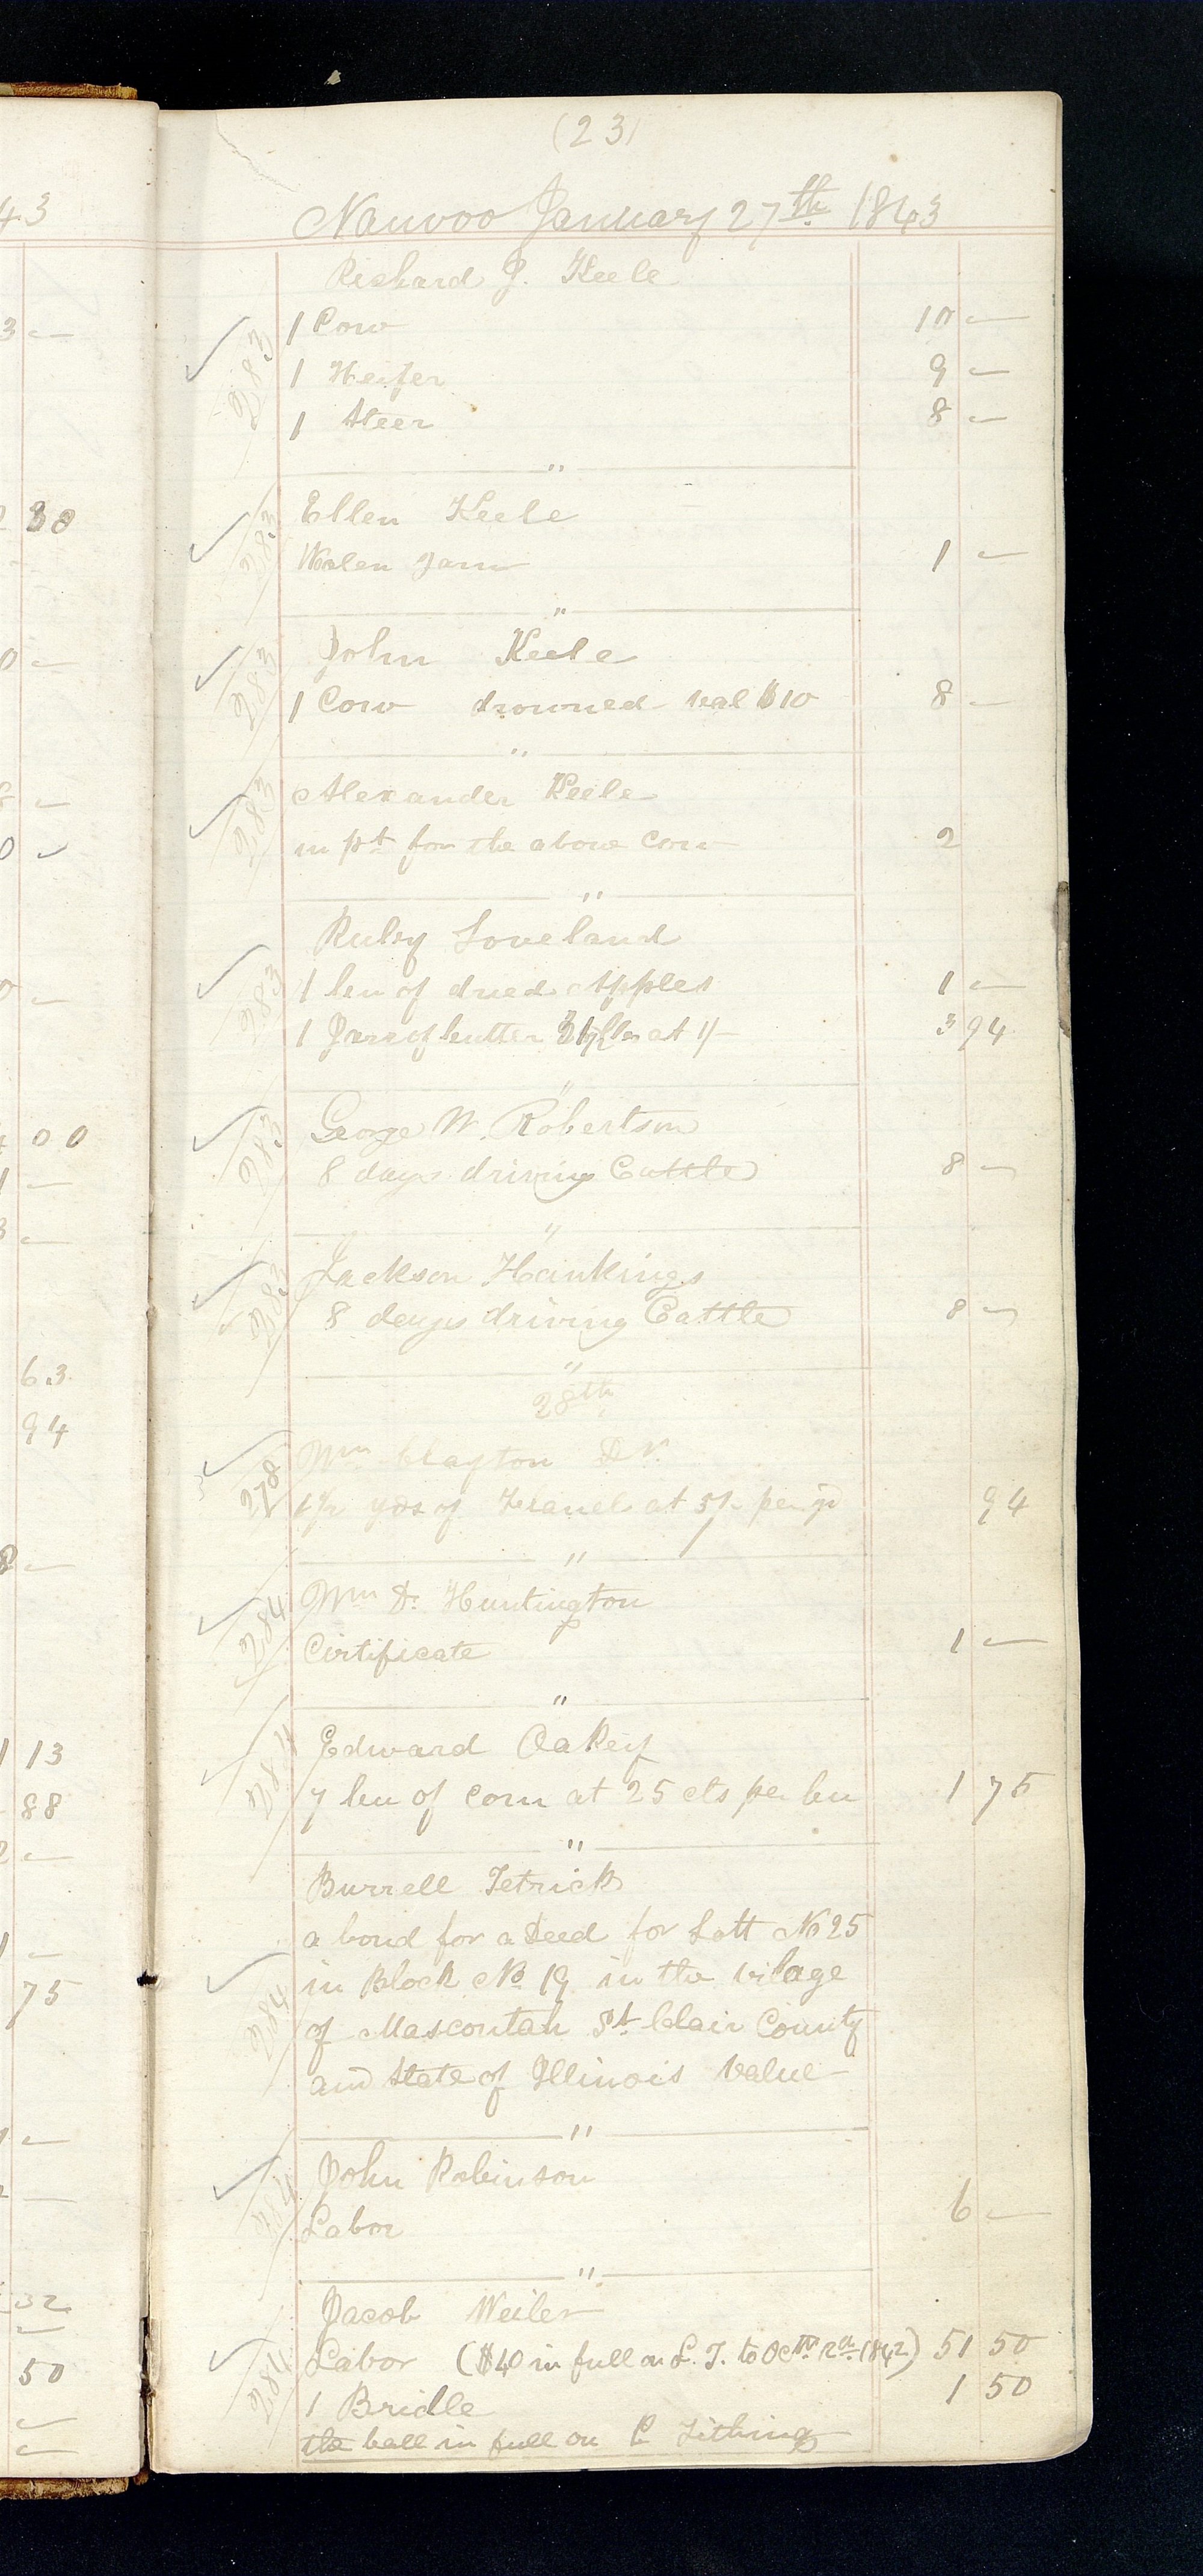 43
(23)
Nauvoo January 27th 1843
Richard J. Keele
283 1 Cow 10 —
1 Heifer 9 —
1 Steer 8 —
"
Ellen Keele
283 Wolen yarn 1 —
"
John Keele
283 1 Cow drowned val $10 8 —
"
Alexander Keele
283 in pt for the above Cow 2
"
Ruby Loveland
283 1 bu of dried Apples 1 —
1 Jarr of butter 31 1/2 lbs at 1/- 3 94
"
George W. Robertson
283 8 days driving Cattle 8 —
"
Jackson Hankings
283 8 days driving Cattle 8 —
"
28th
Wm Clayton Dr.
278 1 1/2 yds of Flanel at 5/- per yd 94
"
Wm D. Huntington
284 Cirtificate 1 —
"
Edward Oakey
284 7 bu of corn at 25 cts per bu 1 75
"
Burrell Tetrick
a bond for a Deed for Lott No 25
284 in Block No 19 in the vilage
of Mascoutah St Clair County
and State of Illinois value —
"
John Robinson
284 Labor 6 —
"
Jacob Weiler
284 Labor ($40 in full on L. T. to Octr 2d 1842) 51 50
1 Bridle 1 50
the ball in full on P Tithing
3 —
2 30
0 —
8 —
0 —
0 —
4 00
1 —
3 —
63
94
8 —
1 13
88
2 —
1 —
75
32
50